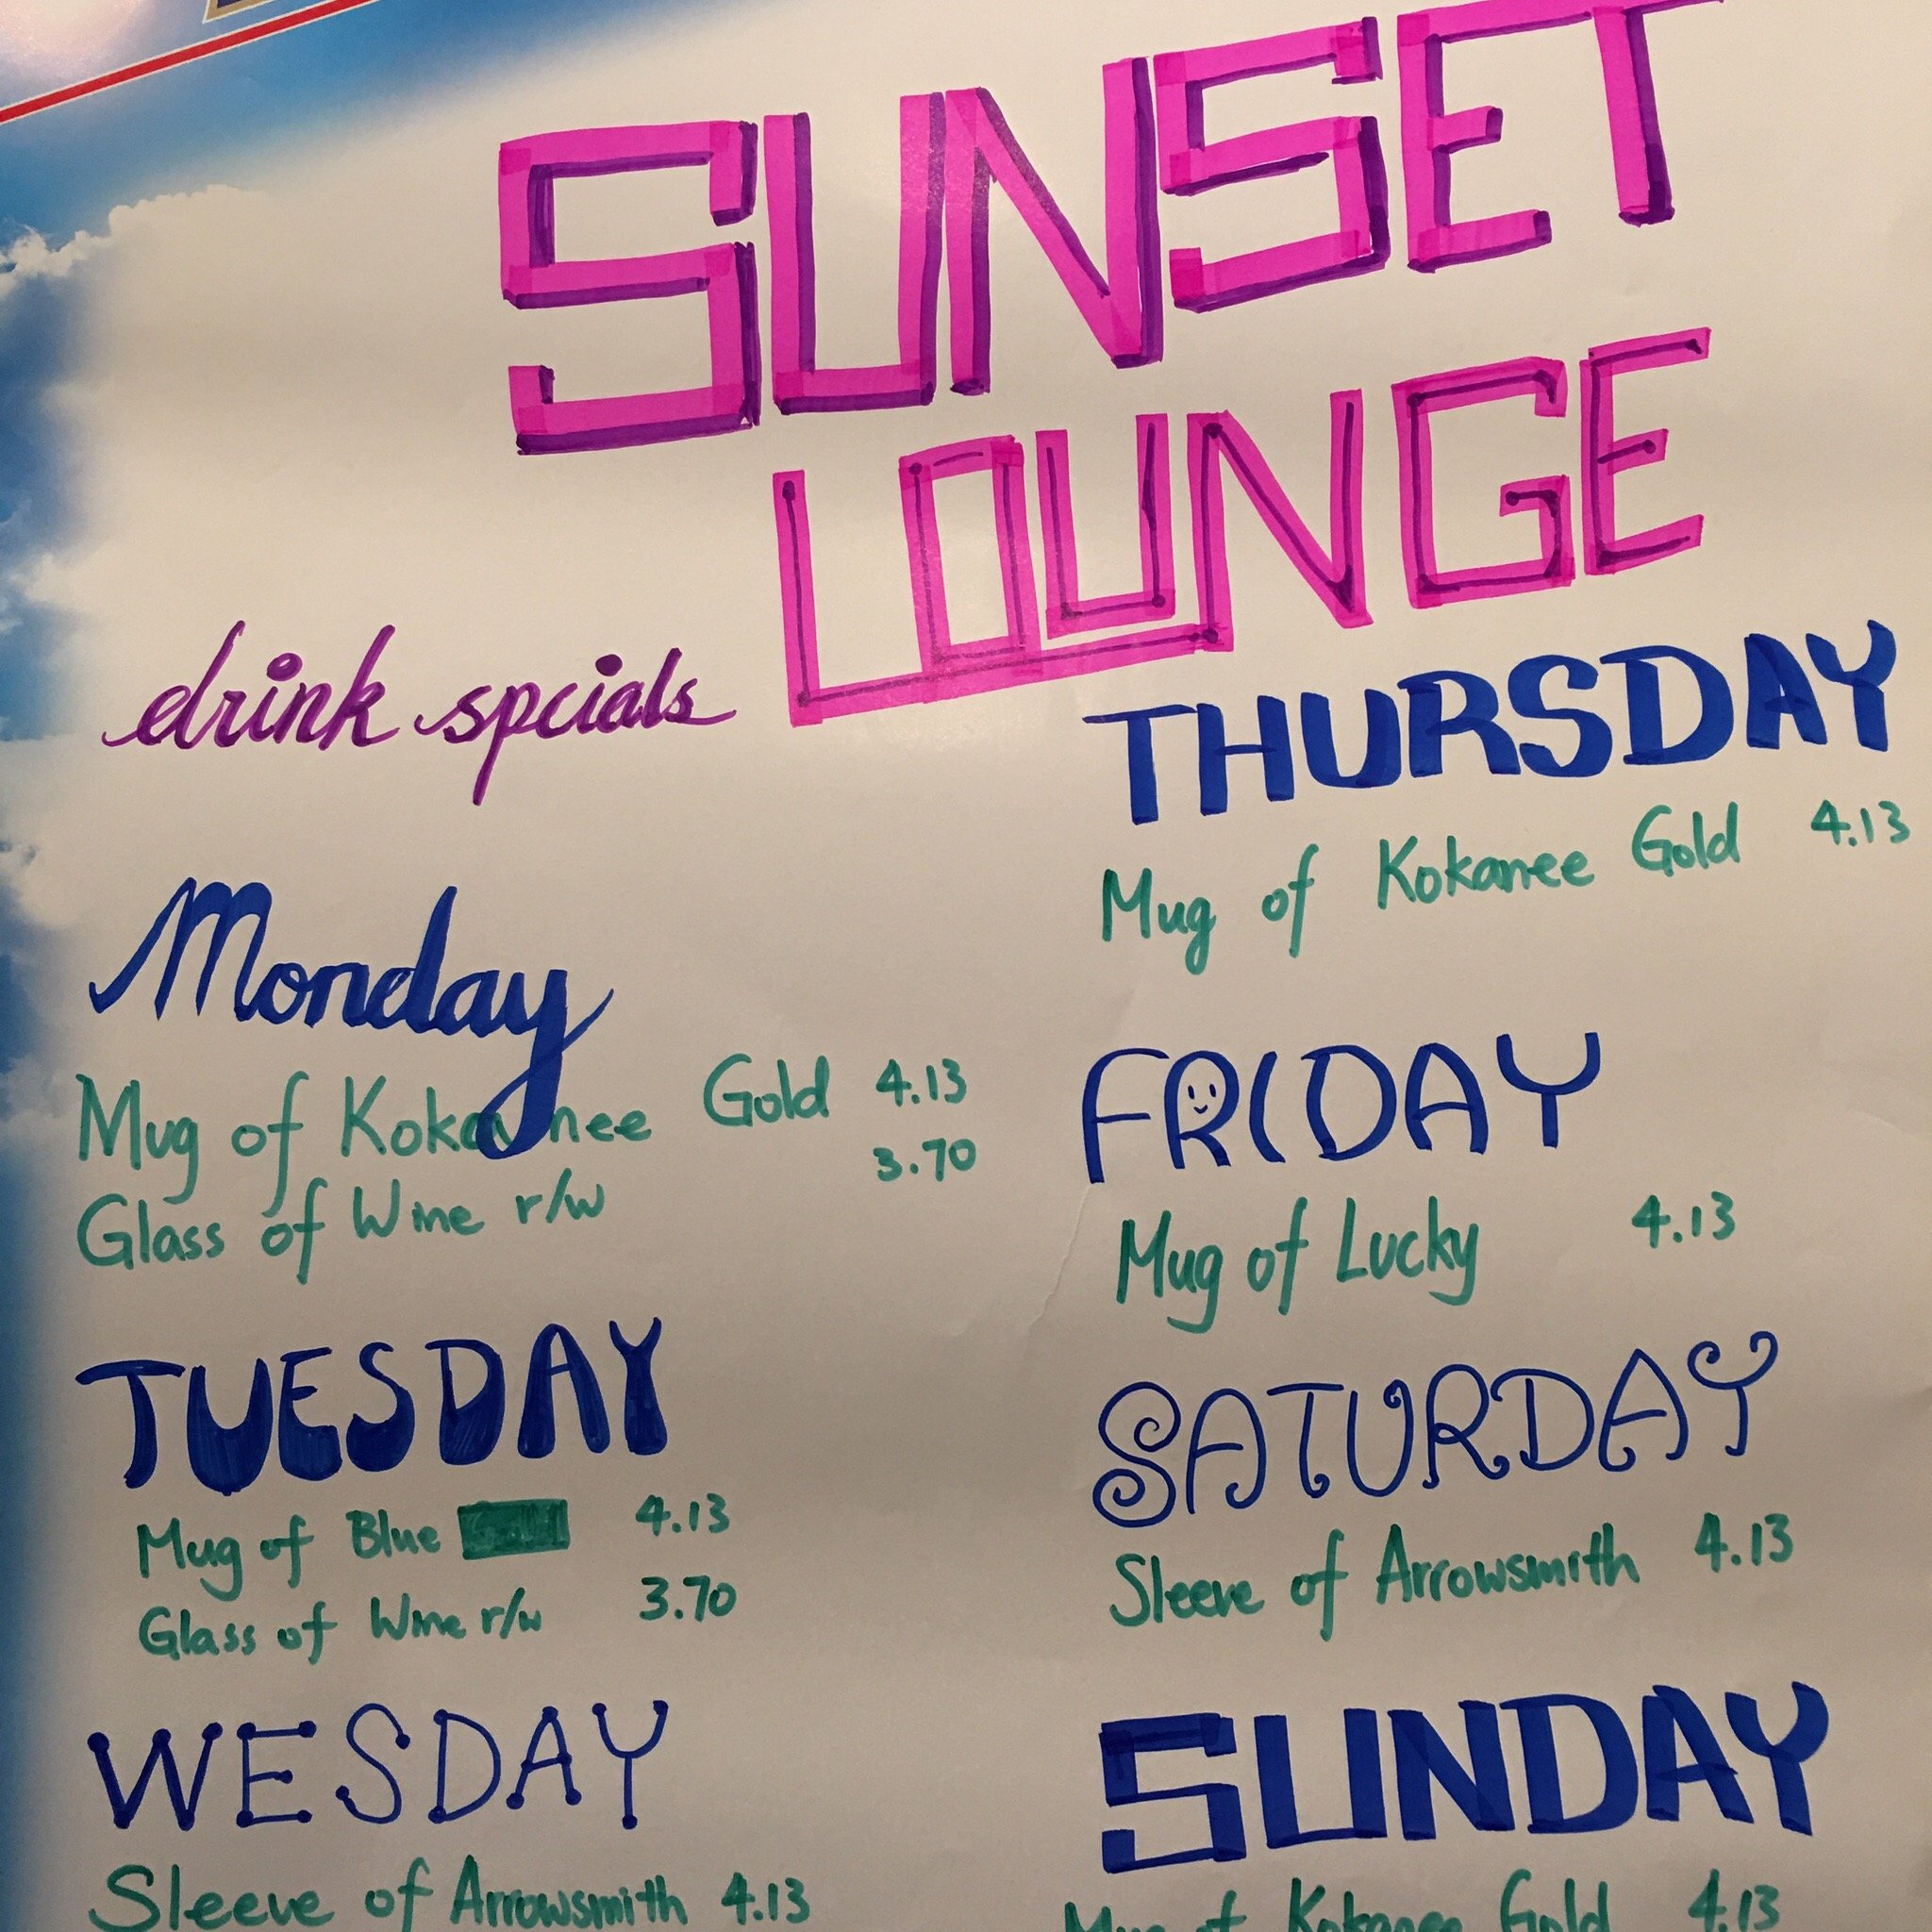 SUNSET
LOUNGE
drink spcials
Monday
Mug of Kokanee Gold 4.13
Glass of Wine r/w 3.70
TUESDAY
Mug of Blue 4.13
Glass of Wine r/w 3.70
WESDAY
Sleeve of Arrowsmith 4.13
THURSDAY
Mug of Kokanee Gold 4.13
FRIDAY
Mug of Lucky 4.13
SATURDAY
Sleeve of Arrowsmith 4.13
SUNDAY
Mug of Kokanee Gold 4.13